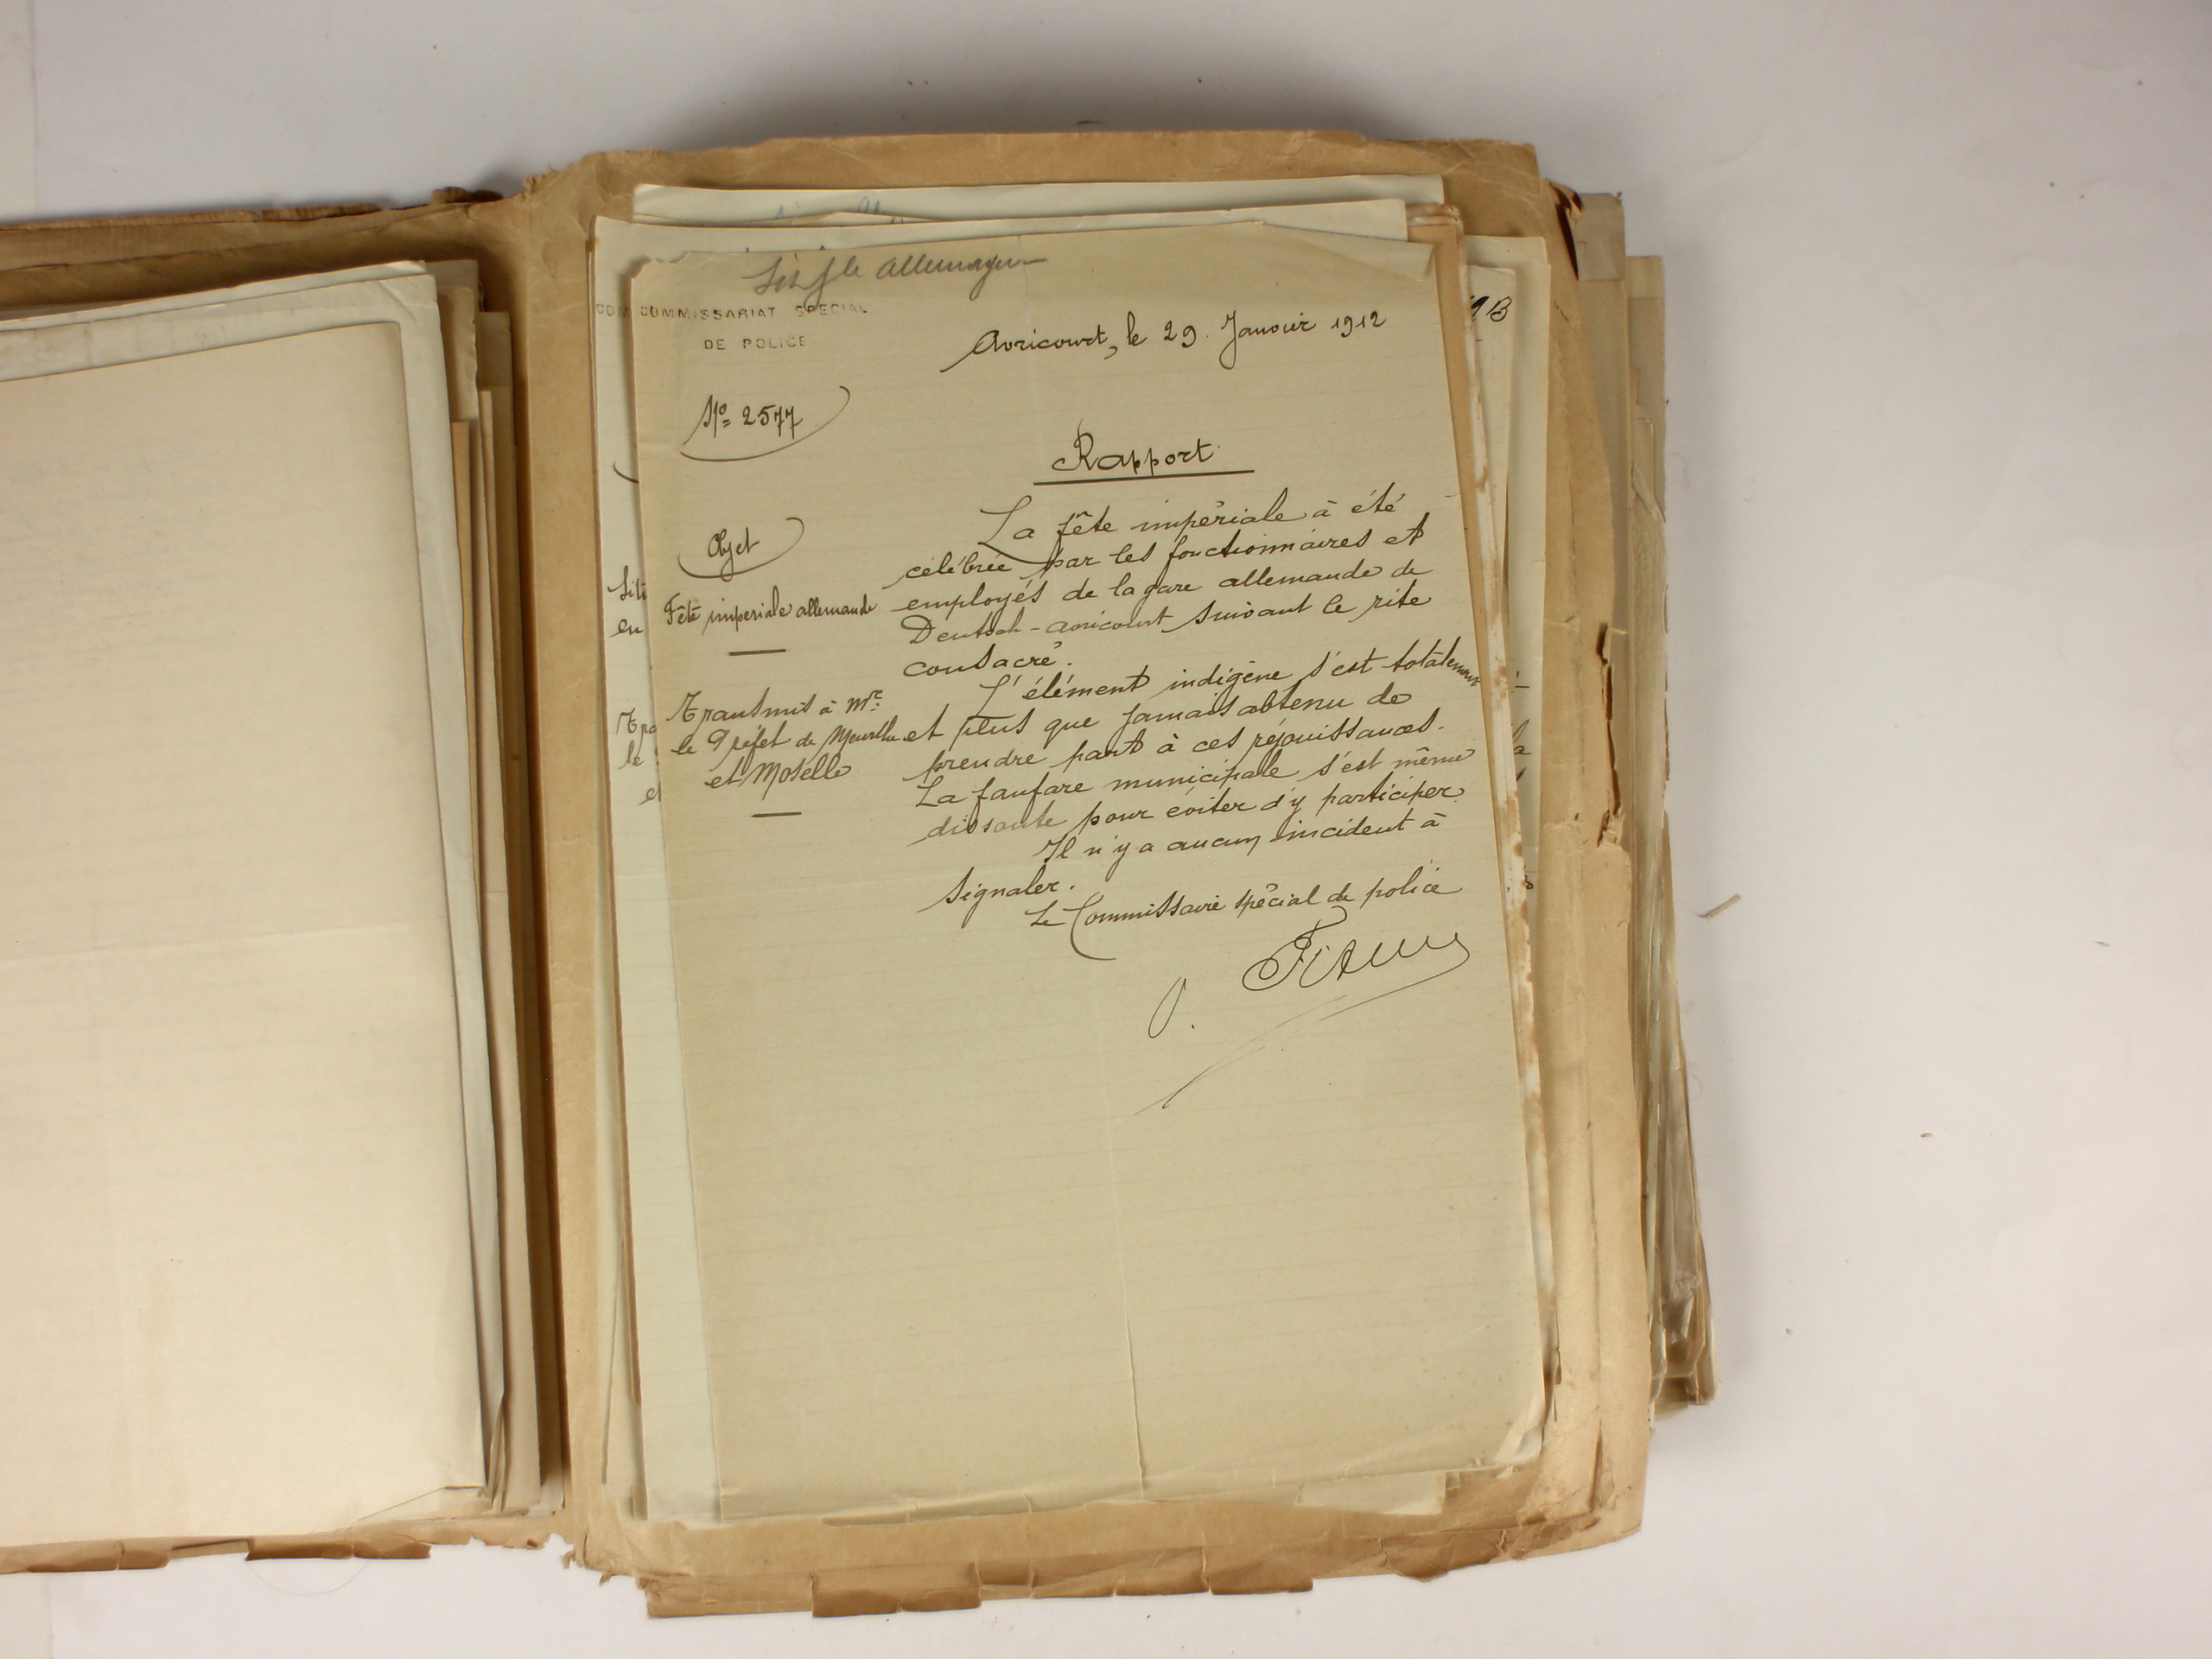 Sit gle Allemagne
COMMISSARIAT SPECIAL
DE POLICE
Avricourt, le 29. Janvier 1912
No 2577
Rapport
Objet
Fête impériale allemande
Transmis à Mr
le Préfet de Meurthe
et Moselle
La fête impériale à été
célébrée par les fonctionnaires et
employés de la gare allemande de
Deutsch-Avricourt suivant le rite
consacré.
L'élément indigène s'est totalement
et plus que jamais abtenu de
prendre part à ces réjouissances.
La fanfare municipale s'est même
dissoute pour éviter d'y participer.
Il n'y a aucun incident à
signaler.
Le Commissaire spécial de police